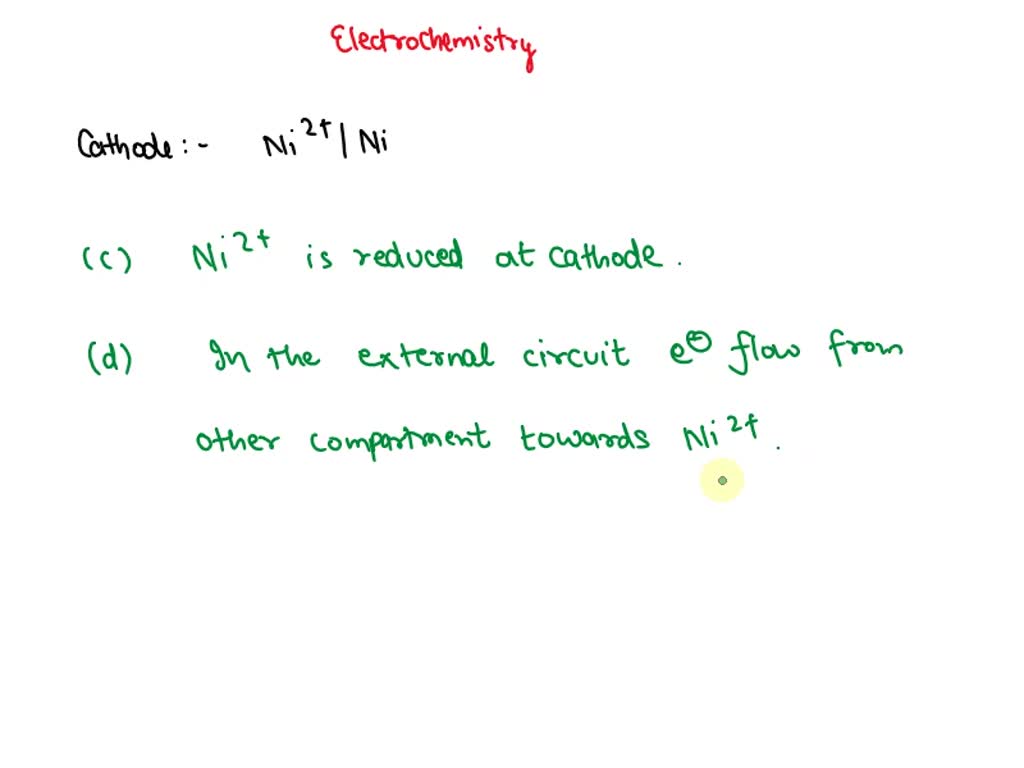 Electrochemistry
Cathode:- Ni²⁺/Ni
(c) Ni²⁺ is reduced at cathode.
(d) In the external circuit e⊖ flow from
other compartment towards Ni²⁺.